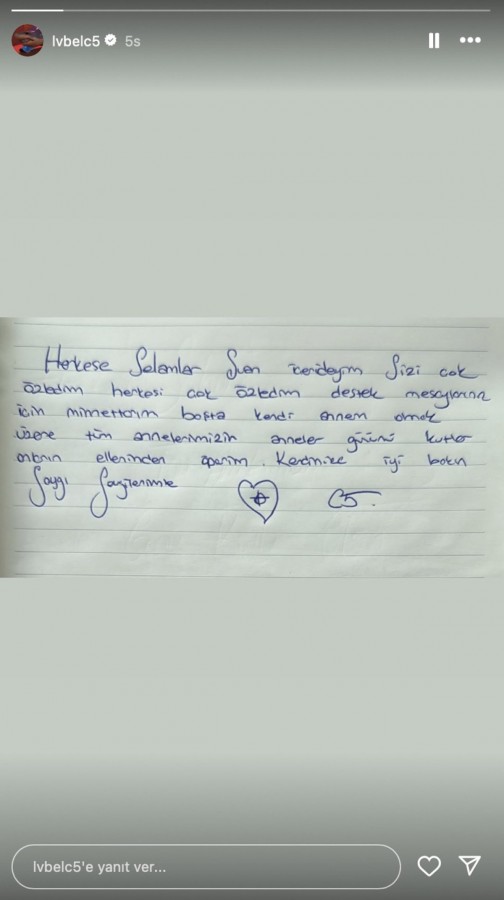 lvbelc5 5s
Herkese Selamlar Şuan icerideyim Sizi cok
özledim herkesi cok özledim destek mesajlarınız
icin minnettarım başta kendi annem olmak
üzere tüm annelerimizin anneler gününü kutlar
onların ellerinden öperim. Kendinize iyi bakın
Saygı Sevgilerimle C5.
lvbelc5'e yanıt ver...